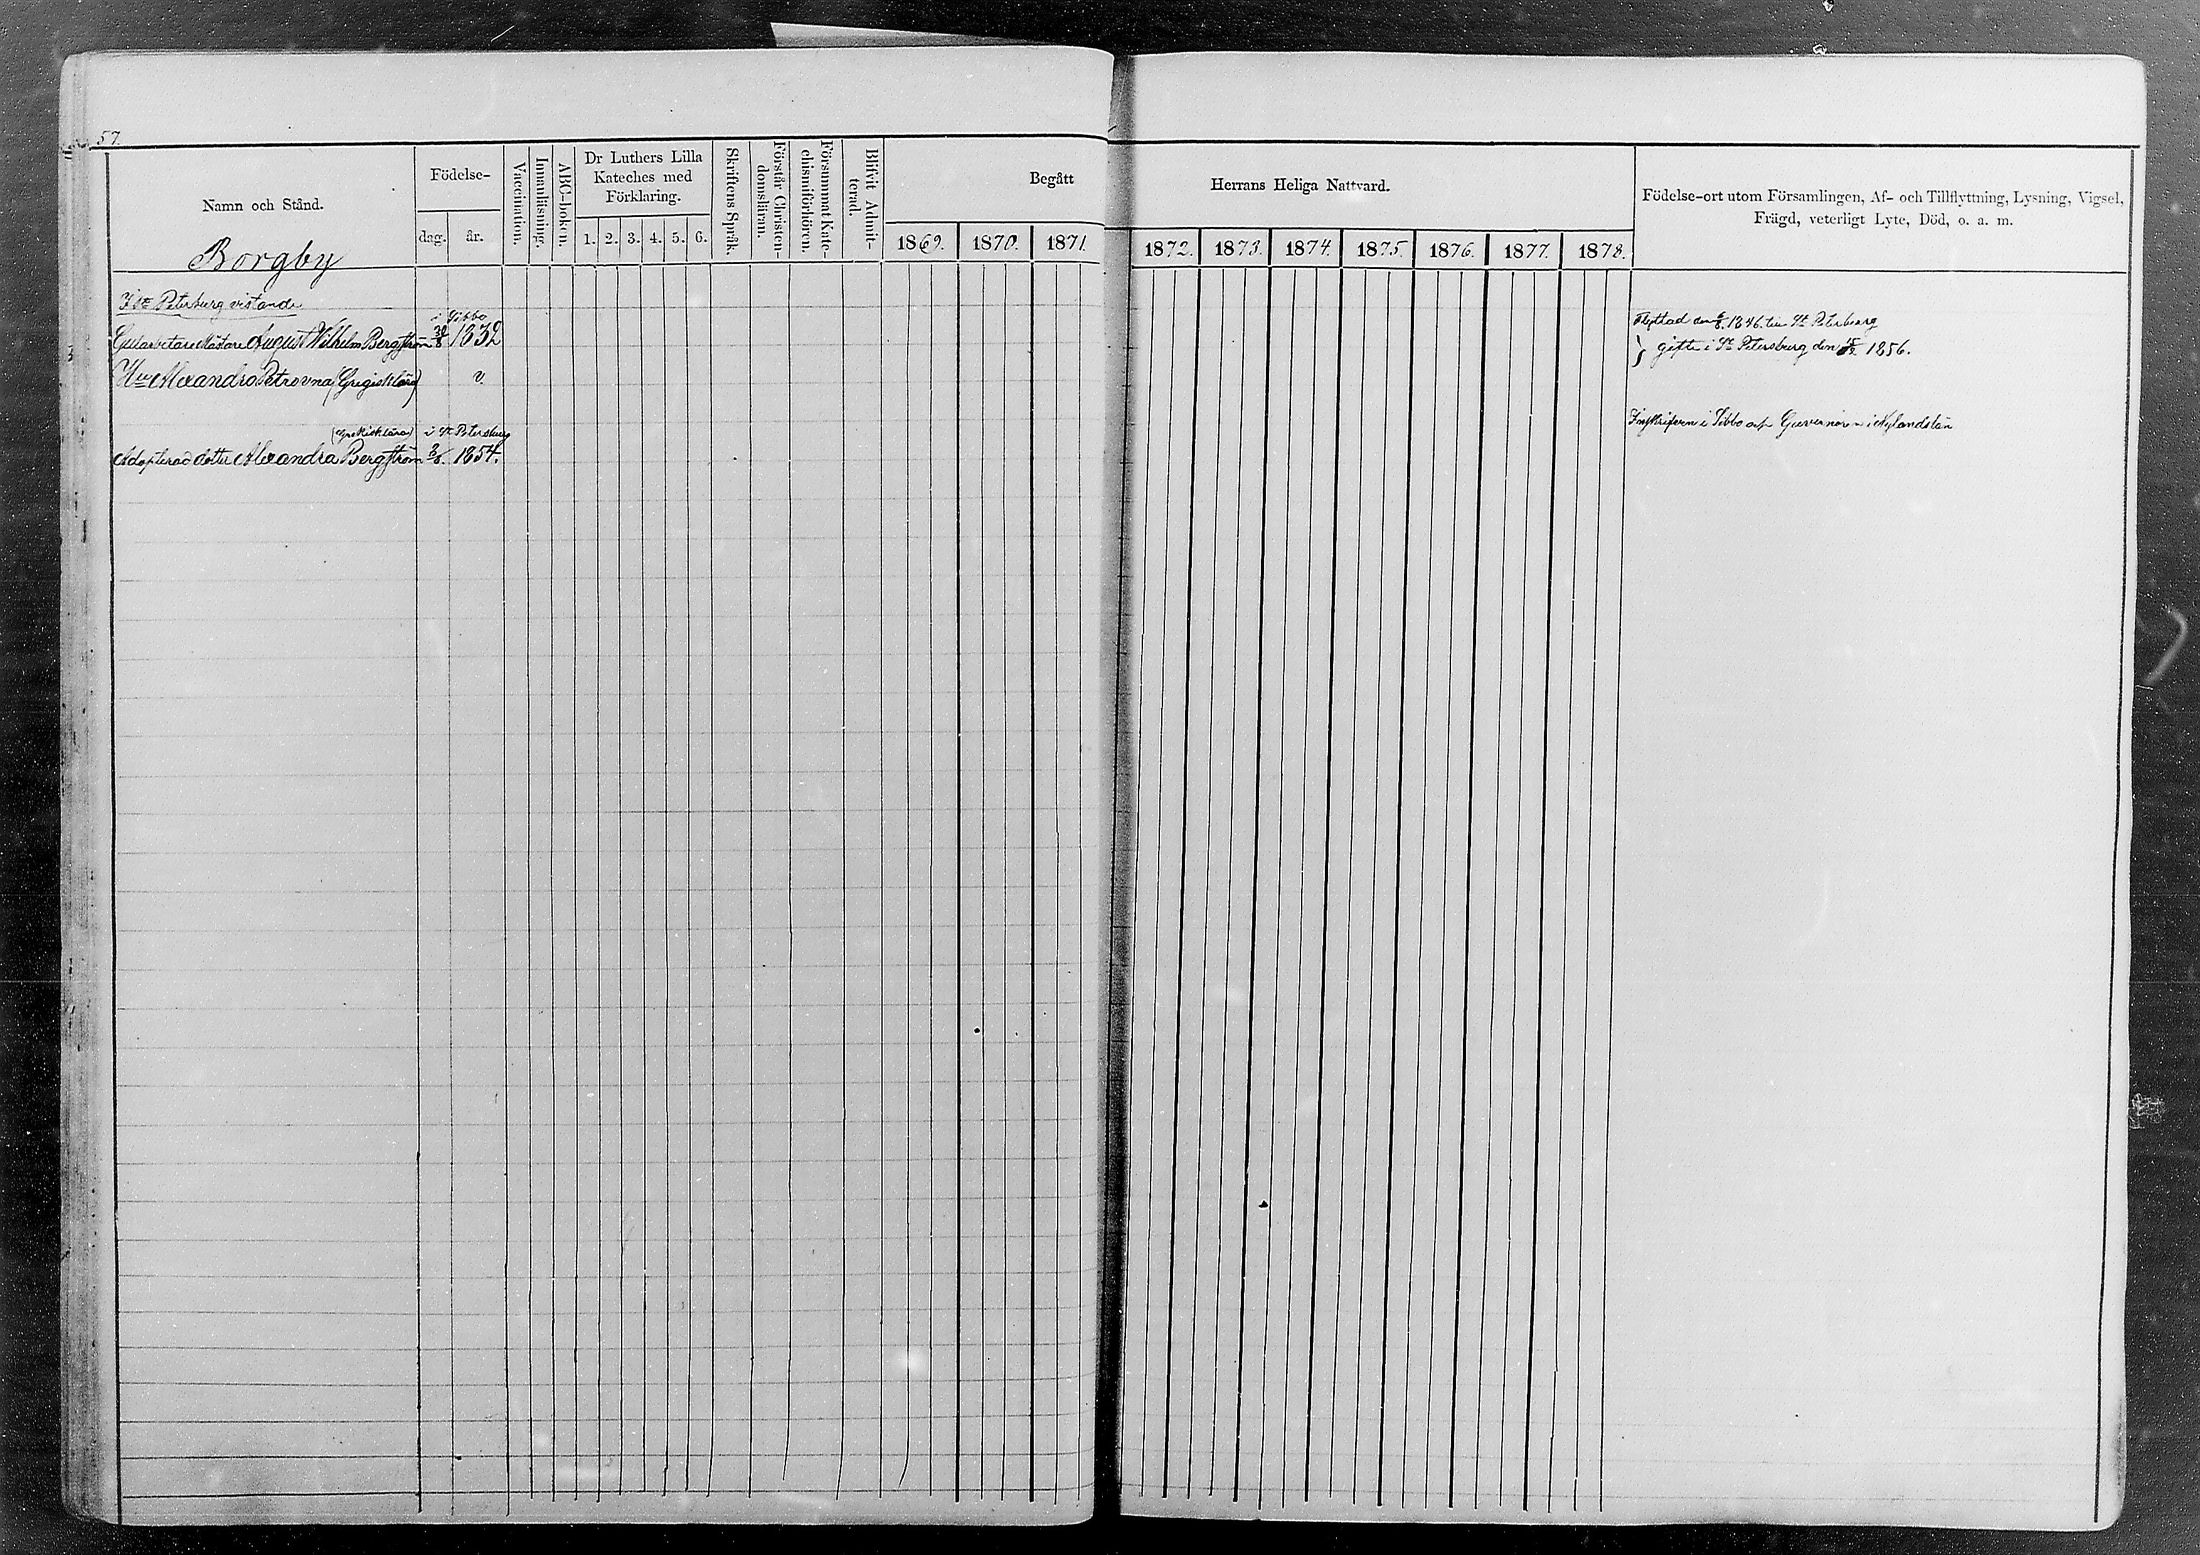 57.
Namn och Stånd.
Födelse-
dag.
år.
Vaccination.
Innanläsning.
ABC-boken.
Dr Luthers Lilla
Kateches med
Förklaring.
1. 2. 3. 4. 5. 6.
Skriftens Språk.
Förstår Christen-
domsläran.
Försummat Kate-
chismiförhören.
Blifvit Admit-
terad.
Begått
1869. 1870. 1871.
Herrans Heliga Nattvard.
1872. 1873. 1874. 1875. 1876. 1877. 1878.
Födelse-ort utom Församlingen, Af- och Tillflyttning, Lysning, Vigsel,
Frägd, veterligt Lyte, Död, o. a. m.
Borgby
I St Petersburg vistande
i Sibbo
Gularbetare Mästare August Wilhelm Bergström 30/8 1832
Flyttad den 6/8 1846 till St Petersburg
Hu Alexandra Petrovna (Gregisk lära) v.
} gifte i St Petersburg den 1856.
(Grekisk lära) i St Petersburg
Inskrifven i Sibbo af Guvernören i Nylands län
Adopterad dotter Alexandra Bergström 2/8. 1854.